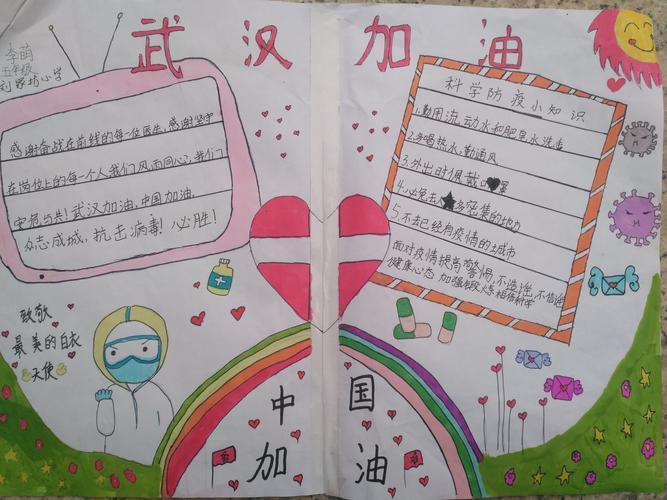 武汉加油
李萌
五年级
刘家坊小学
感谢备战在前线的每一位医生，感谢坚守
在岗位上的每一个人我们风雨同心，我们
安危与共！武汉加油，中国加油，
众志成城，抗击病毒！必胜！
科学防疫小知识
1.勤用流动水和肥皂水洗手
2.多喝热水，勤通风
3.外出时佩戴口罩
4.避免去人多密集的地方
5.不去已经有疫情的城市
面对疫情提高警惕，不造谣，不信谣
健康心态 加强锻炼 相信科学
致敬
最美的白衣
天使
中国
加油